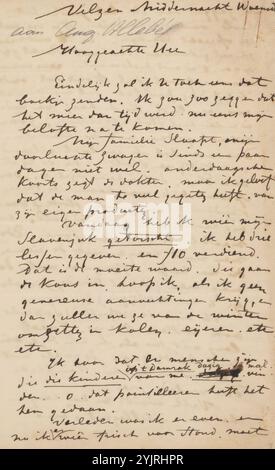 Velzen Middernacht Woensd
aan Aug Allebé
Hooggeachte Heer
Eindelijk zal ik U toch eens dat
boekje zenden. Ik zou zoo zeggen dat
het meer dan tijd werd nu eens mijn
belofte na te komen.
Mijn familie slaapt, mijn
doorluchte zwager is sinds een paar
dagen niet wel, anderdaagsche
koorts zegt de dokter maar ik geloof
dat de man te veel gegeten heeft van
z'n eigen producten.
Vandaag heb ik wéér mijn
Slavenjuk getorscht. ik heb drie
lessen gegeven en f10 verdiend.
Dat is de moeite waard. die gaan
de kous in, hoop ik, als ik geen
genereuse aanvechtingen krijg, en
dan zullen we ze van de winter
omzetten in kolen, eijeren, etc
etc.
Ik hoor dat er menschen zijn
die die kinderen op 't Damrak
den. o. dat pointilleeren heeft het
hem gedaan.
Verleden was ik er even, en
nu ik wéér frisch van stond, moet
alamy